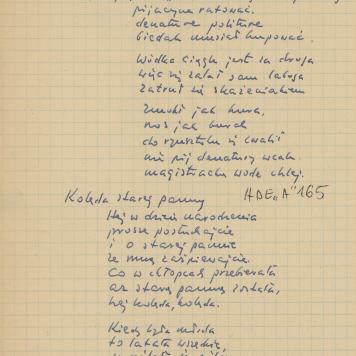 pijaczyne ratować.
denaturę politurę
biedak musiał kupować.
Wódka ciągle jest za droga
więc się zalał sam
zatruł się skażeniakiem
jak kura,
nos jak burak
do rynsztoku się zwalił
nie pij denatury wcale
magistracką wodę chlej.
Kolęda starej panny
HDE „A" 165
Hej w dzień narodzenia
proszę posłuchajcie
i o starej pannie
ze mną zaśpiewajcie.
Co w chłopcach przebierała
aż starą panną została,
hej kolęda, kolęda.
Kiedy była młoda
to latała wszędzie